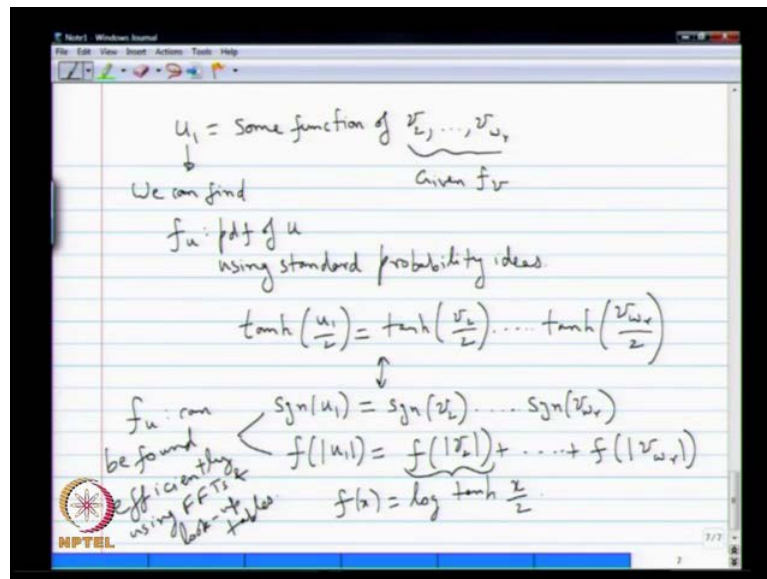 Note1 - Windows Journal
File Edit View Insert Actions Tools Help
u₁ = Some function of v₂, ..., v_{w_r}
Given f_v
We can find
f_u : pdf of u
using standard probability ideas.
tanh(u₁/2) = tanh(v₂/2) ..... tanh(v_{w_r}/2)
f_u : can be found efficiently using FFTs & look-up tables.
sgn(u₁) = sgn(v₂) ..... sgn(v_{w_r})
f(|u₁|) = f(|v₂|) + ..... + f(|v_{w_r}|)
f(x) = log tanh x/2
NPTEL
7/7
7